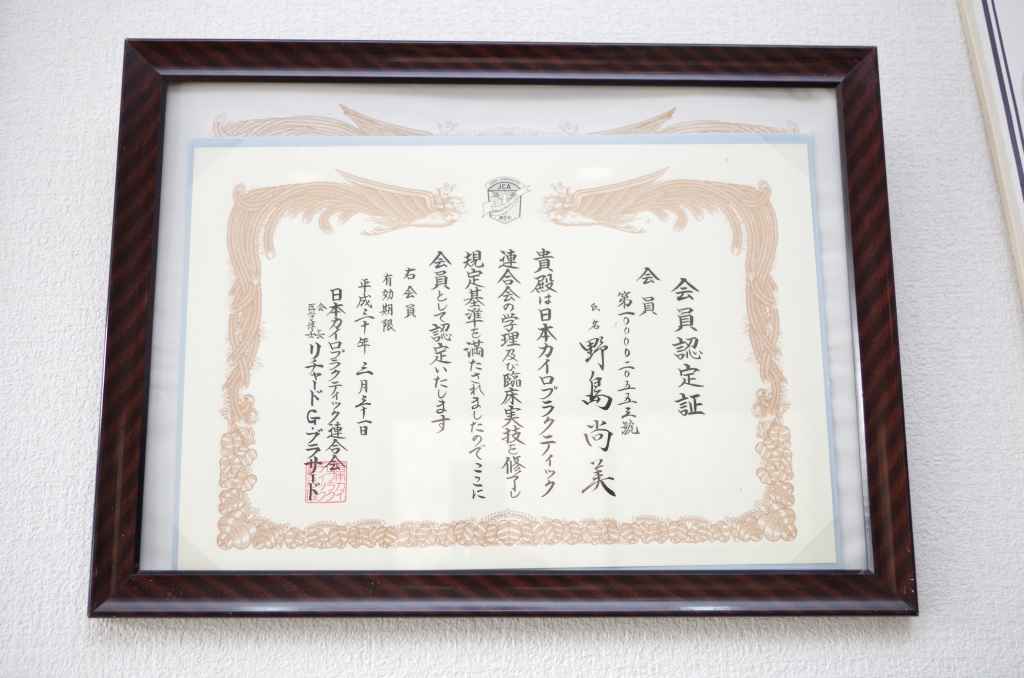 JCA
会員認定証
会員
第一〇〇〇〇二〇五五三號
氏名 野島尚美
貴殿は日本カイロプラクティック
連合会の学理及び臨床実技を修了し
規定基準を満たされましたのでここに
会員として認定いたします
右会員
有効期限
平成二十年三月三十一日
日本カイロプラクティック連合会
会長
リチャードG・ブラサード